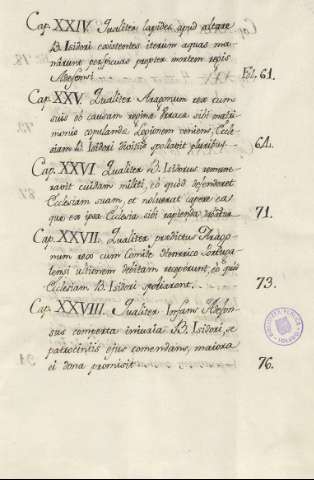 Cap. XXIV. Qualiter lapides apud altare
B. Isidori existentes iterum aquas ma-
nârunt perspicuas propter mortem regis
Adefonsi. Fol. 61.
Cap. XXV. Qualiter Aragonum rex cum
suis eò causam reginæ Urracæ sibi matri-
monio copulandæ Legionem veniens, Eccle-
siam B. Isidori divitiis spoliavit pluribus. 64.
Cap. XXVI. Qualiter B. Isidorus remune-
ravit cuidam militi, eò quod defenderet
Ecclesiam suam, et noluerat capere ea
quæ ex ipsa Ecclesia sibi rapienda 71.
Cap. XXVII. Qualiter prædictus Arago-
num rex cum Comite Henrico Portuga-
lensi ultionem debitam receperunt, eò quod
Ecclesiam B. Isidori spoliarent. 73.
Cap. XXVIII. Qualiter Infans Adefon-
sus comperta B. Isidori, se
patrociniis ejus comendans, maiora
ei dona promisit 76.